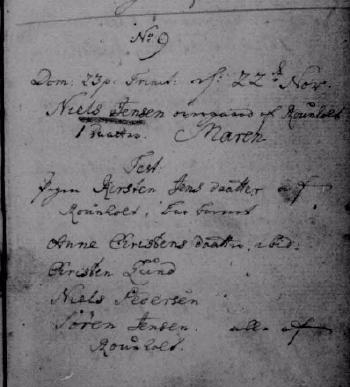 No: 9
Dom: 23 p. Trinit: 22 Nov.
Niels Jensen af Rounholt
1 Daatter. Maren
Test:
Pigen Kersten Jens daatter af
Rounholt, bar barnet
Anne Christens daatter, ibid:
Christen Lund
Niels Pedersen
Sören Jensen. alle af
Rounholt.